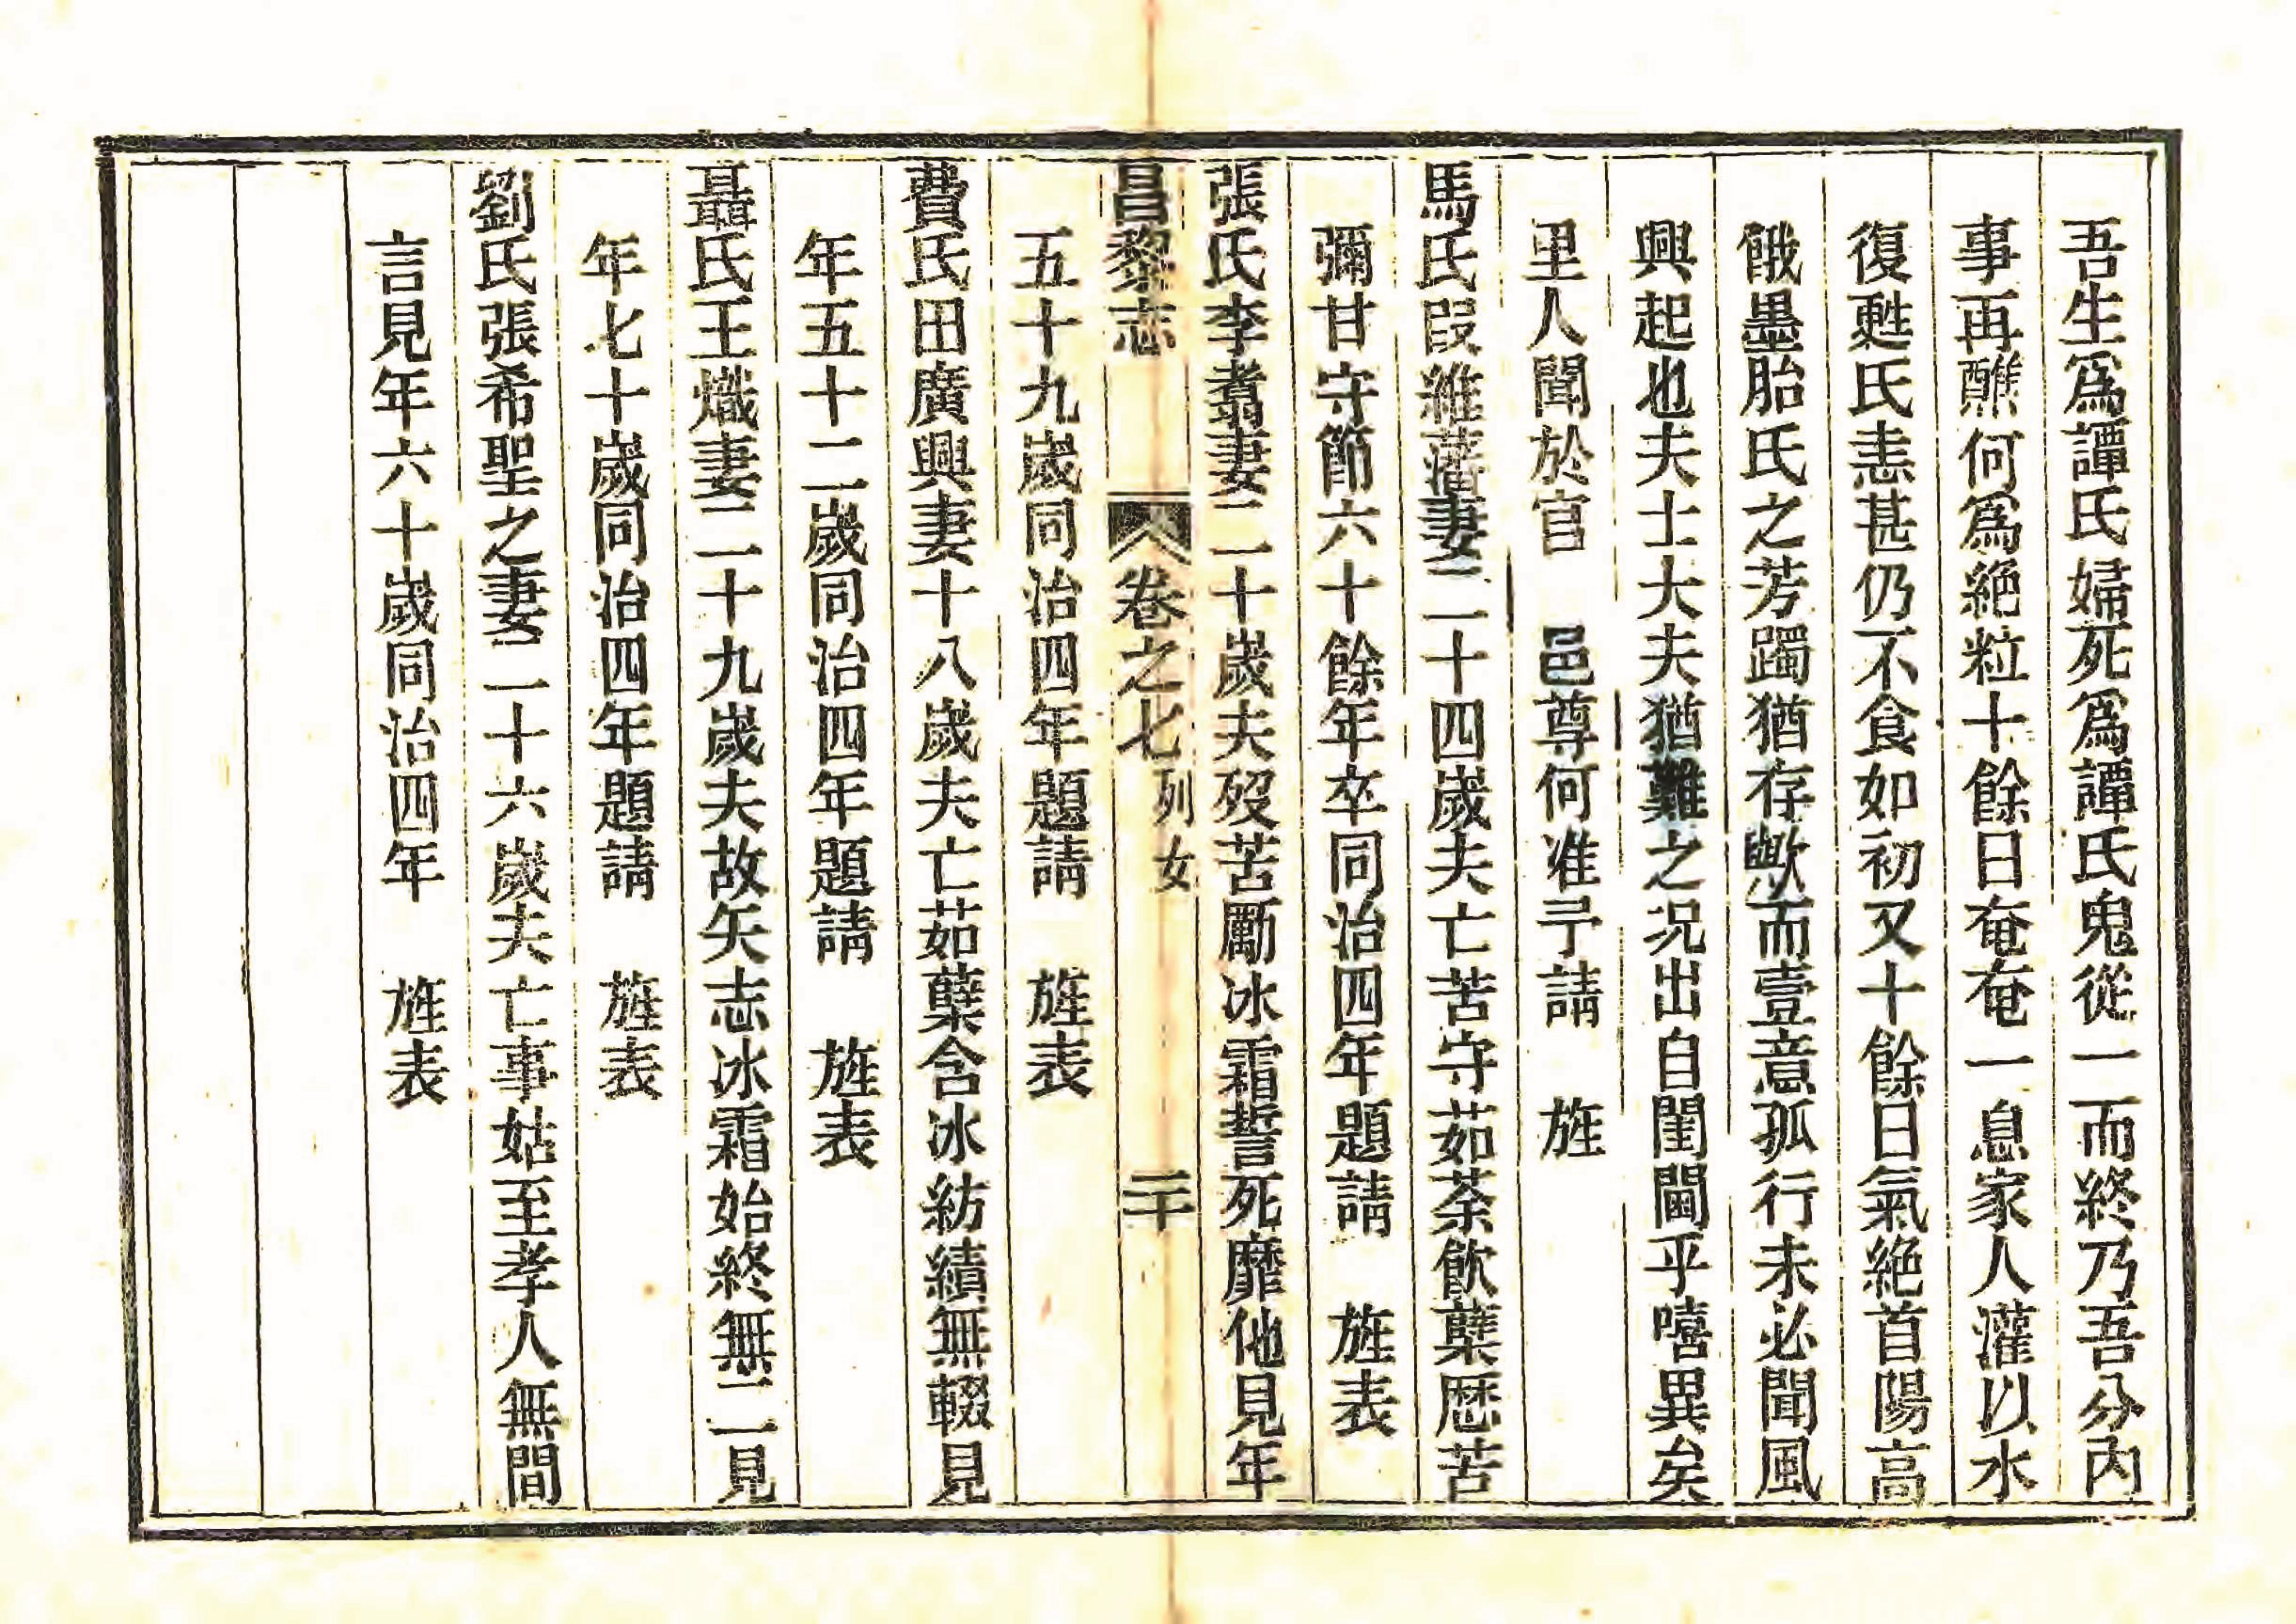 吾生爲譚氏婦死爲譚氏鬼從一而終乃吾分内
事再醮何爲絶粒十餘日奄奄一息家人灌以水
復甦氏恚甚仍不食如初又十餘日氣絶首陽高
餓墨胎氏之芳躅猶存歟而壹意孤行未必聞風
興起也夫士大夫猶難之况出自閨閫乎嘻異矣
里人聞於官　邑尊何准予請　旌
馬氏叚維藩妻二十四歲夫亡苦守茹荼飲蘖歷苦
彌甘守節六十餘年卒同治四年題請　旌表
張氏李翥妻二十歲夫殁苦勵冰霜誓死靡他見年
昌黎志　卷之七　列女　二十
五十九歲同治四年題請　旌表
費氏田廣興妻十八歲夫亡茹蘖含冰紡績無輟見
年五十二歲同治四年題請　旌表
聶氏王熾妻二十九歲夫故矢志冰霜始終無二見
年七十歲同治四年題請　旌表
劉氏張希聖之妻二十六歲夫亡事姑至孝人無間
言見年六十歲同治四年　旌表